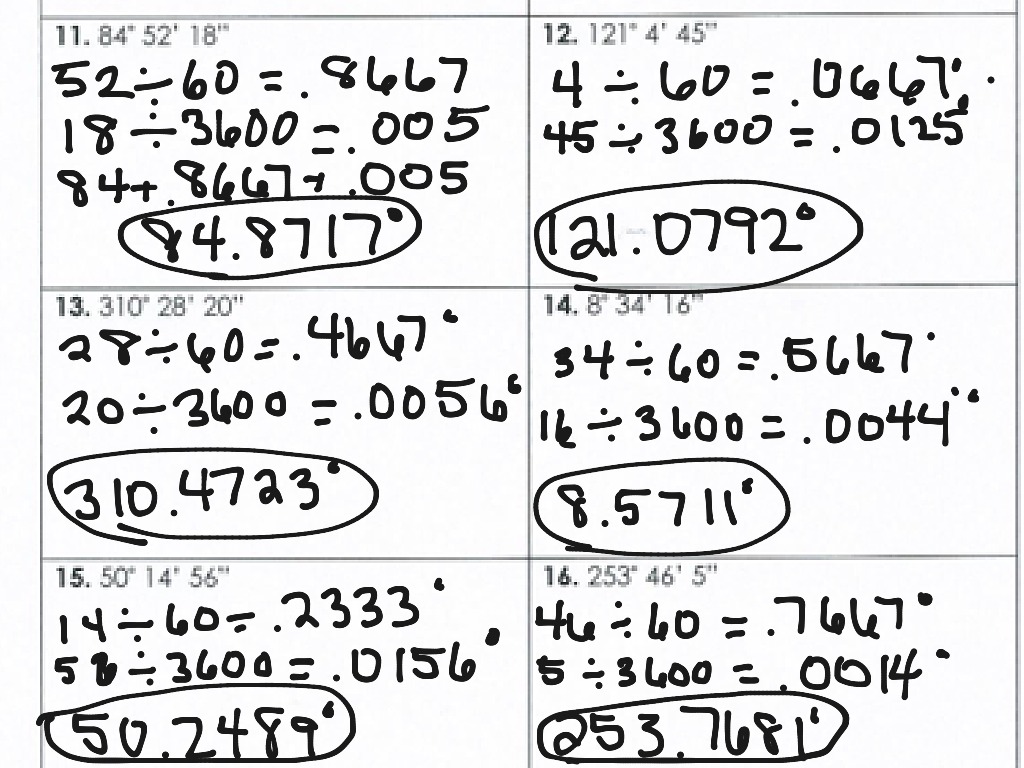 11. 84° 52' 18"
52 ÷ 60 = .8667
18 ÷ 3600 = .005
84 + .8667 + .005
84.8717°
12. 121° 4' 45"
4 ÷ 60 = .0667°
45 ÷ 3600 = .0125°
121.0792°
13. 310° 28' 20"
28 ÷ 60 = .4667°
20 ÷ 3600 = .0056°
310.4723°
14. 8° 34' 16"
34 ÷ 60 = .5667°
16 ÷ 3600 = .0044°
8.5711°
15. 50° 14' 56"
14 ÷ 60 = .2333°
56 ÷ 3600 = .0156°
50.2489°
16. 253° 46' 5"
46 ÷ 60 = .7667°
5 ÷ 3600 = .0014°
253.7681°